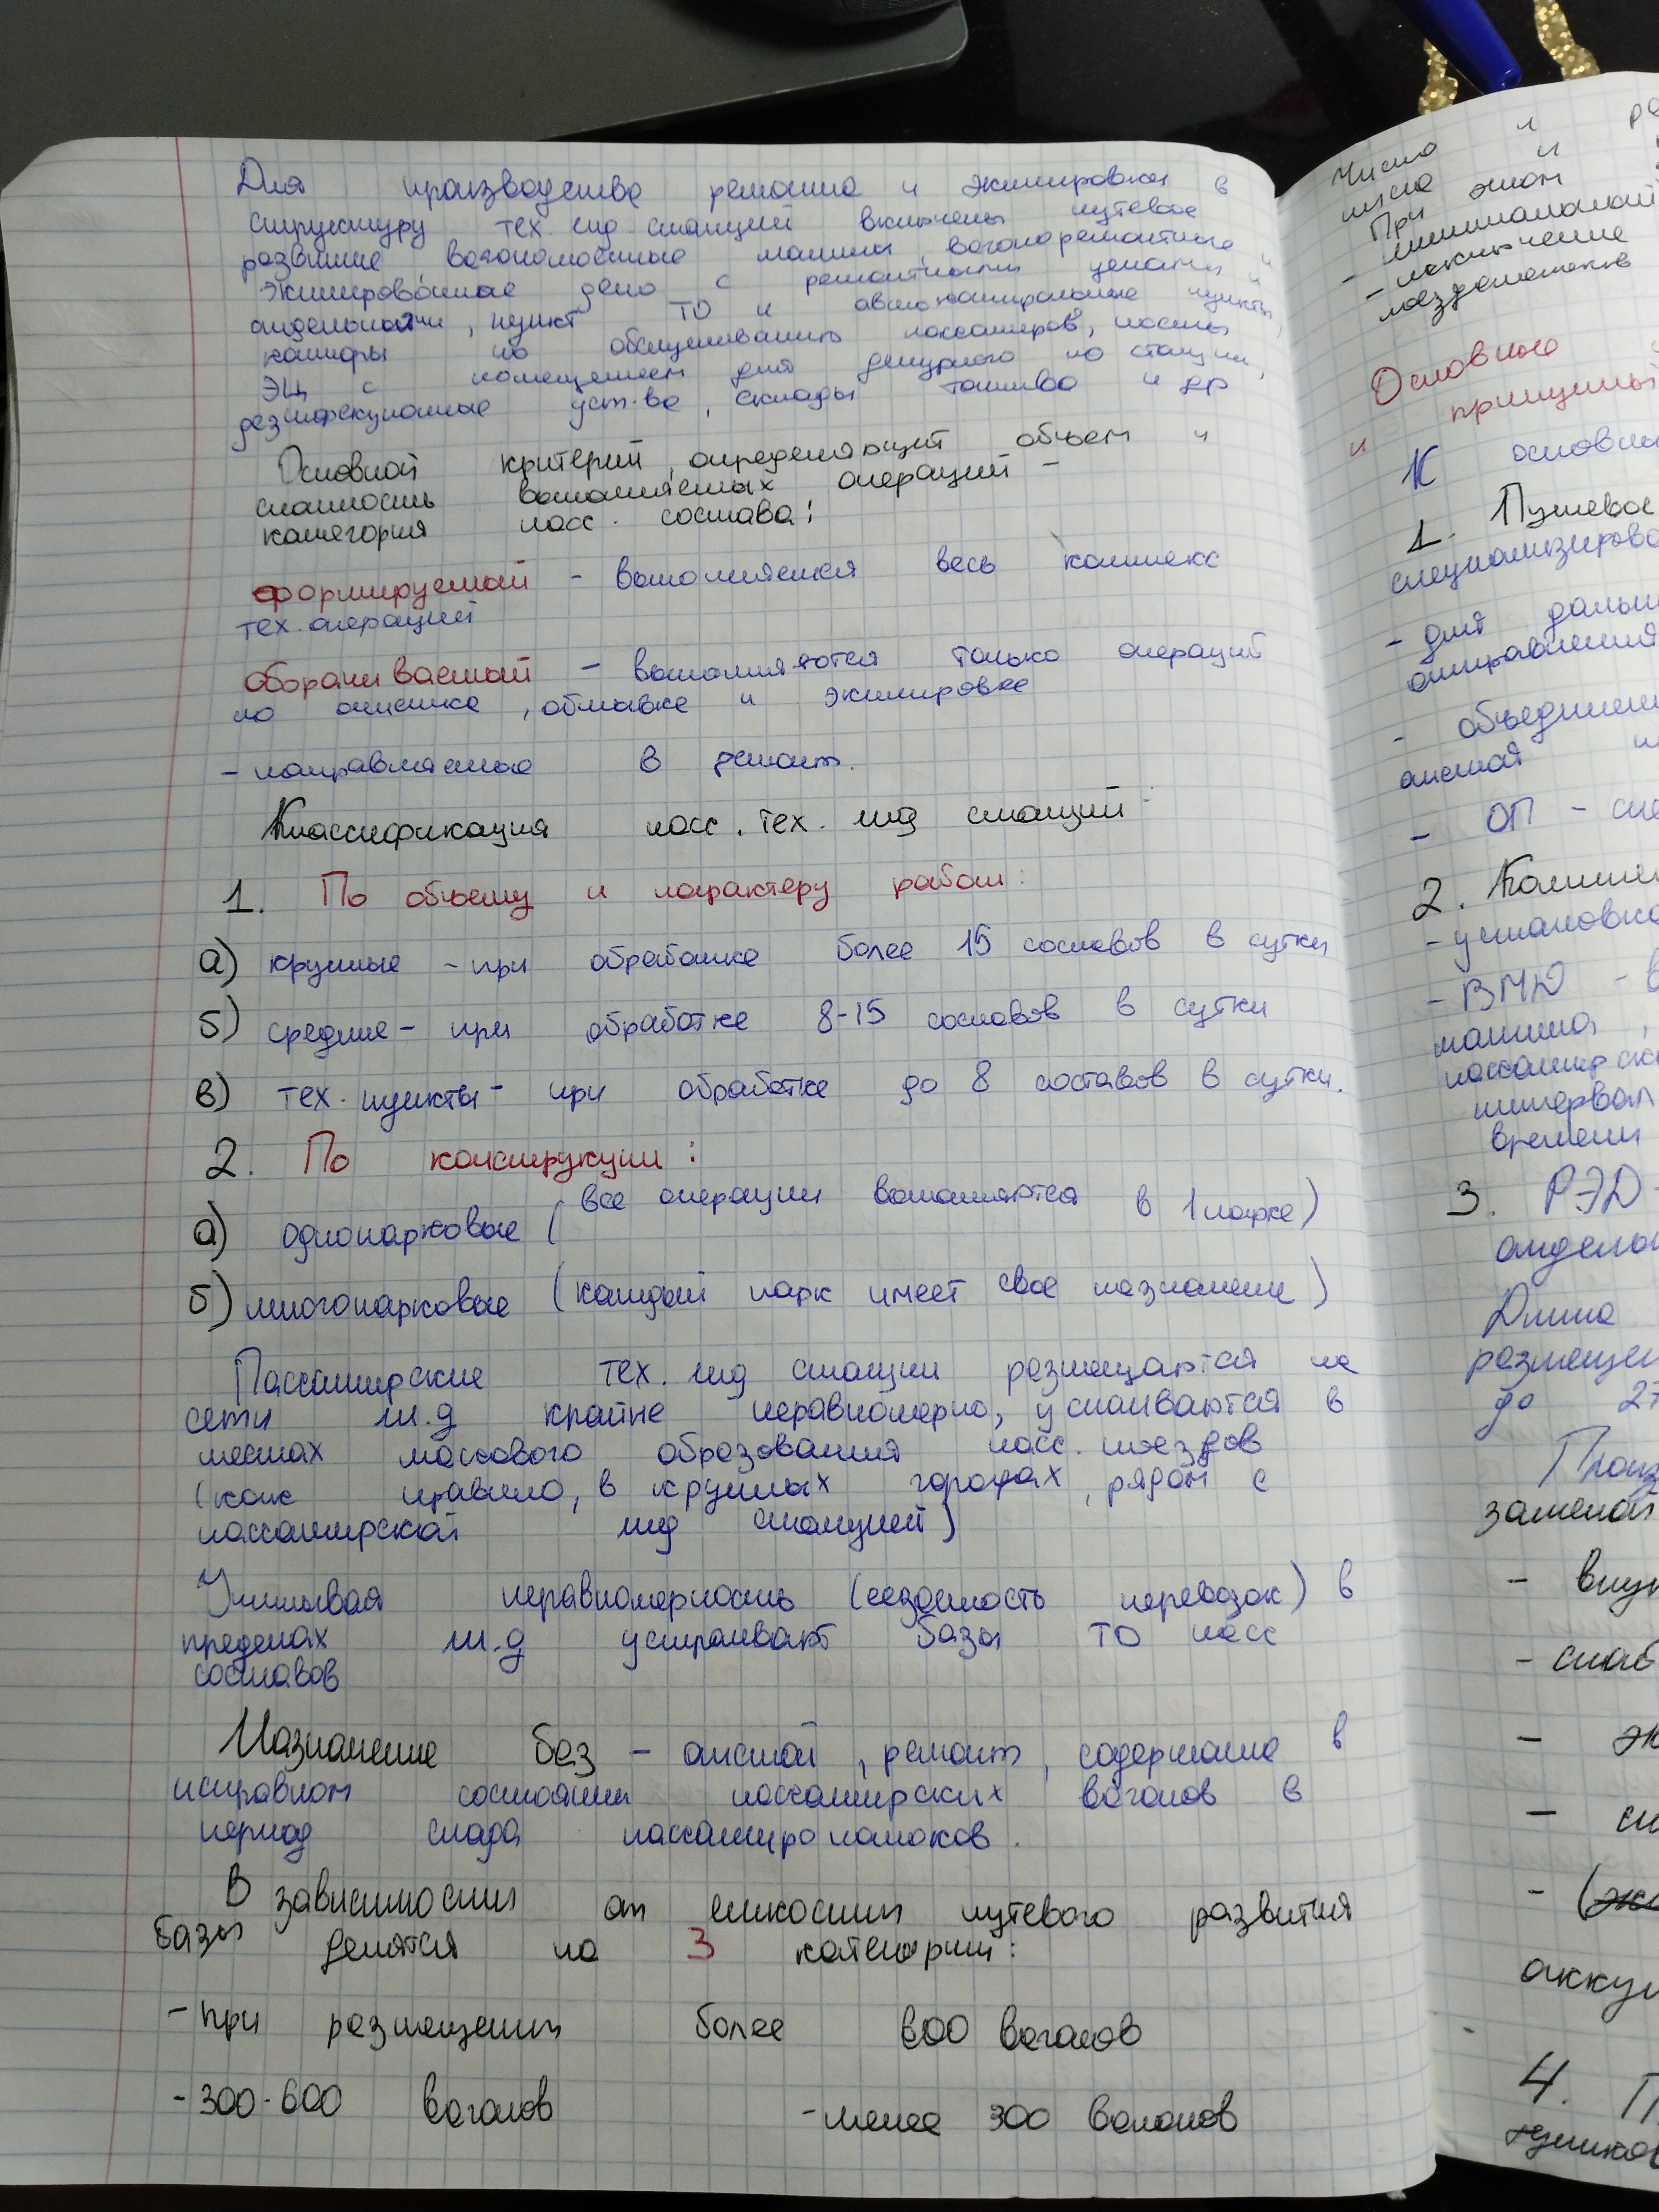 Для производства ремонта и экипировки в
структуру тех. жд станций включены путевое
развитие, вагономоечные машины, вагоноремонтные и
экипировочные депо с ремонтными цехами и
отделениями, пункт ТО и автоконтрольные пункты,
конторы по обслуживанию пассажиров, посты
ЭЦ с помещением для дежурного по станции,
дезинфекционные уст-ва, склады топлива и др
Основной критерий, определяющий объем и
сложность выполняемых операций -
категория пасс. состава:
формируемый - выполняется весь комплекс
тех. операций
оборачиваемый - выполняются только операций
по очистке, обмывке и экипировке
- направляемые в ремонт.
Классификация пасс. тех. жд станций:
1. По объему и характеру работ:
а) крупные - при обработке более 15 составов в сутки
б) средние - при обработке 8-15 составов в сутки
в) тех. пункты - при обработке до 8 составов в сутки.
2. По конструкции:
а) однопарковые (все операции выполняются в 1 парке)
б) многопарковые (каждый парк имеет свое назначение)
Пассажирские тех. жд станции размещаются на
сети ж.д крайне неравномерно, устаиваются в
местах массового образования пасс. поездов
(как правило, в крупных городах, рядом с
пассажирской жд станцией)
Учитывая неравномерность (сезонность перевозок) в
пределах ж.д устраивают базы ТО пасс
составов
Назначение баз - отстой, ремонт, содержание в
исправном состоянии пассажирских вагонов в
период спада пассажиропотоков.
В зависимости от емкости путевого развития
базы делятся на 3 категории:
- при размещении более 600 вагонов
- 300-600 вагонов - менее 300 вагонов
Число и
числа и
При этом
- минимальной
- исключение
Основные
и принципы
К основн
1. Путевое
специализирова
- для дальн
отправления
- объединен
отстоя
- ОП -
2. Компле
- установка
- ВМД -
машина,
пассажирск
интервал
времени
3. РЭД -
отделен
Длина
размещен
до 27
Произ
заменой
- внут
- снаб
аккум
4. П